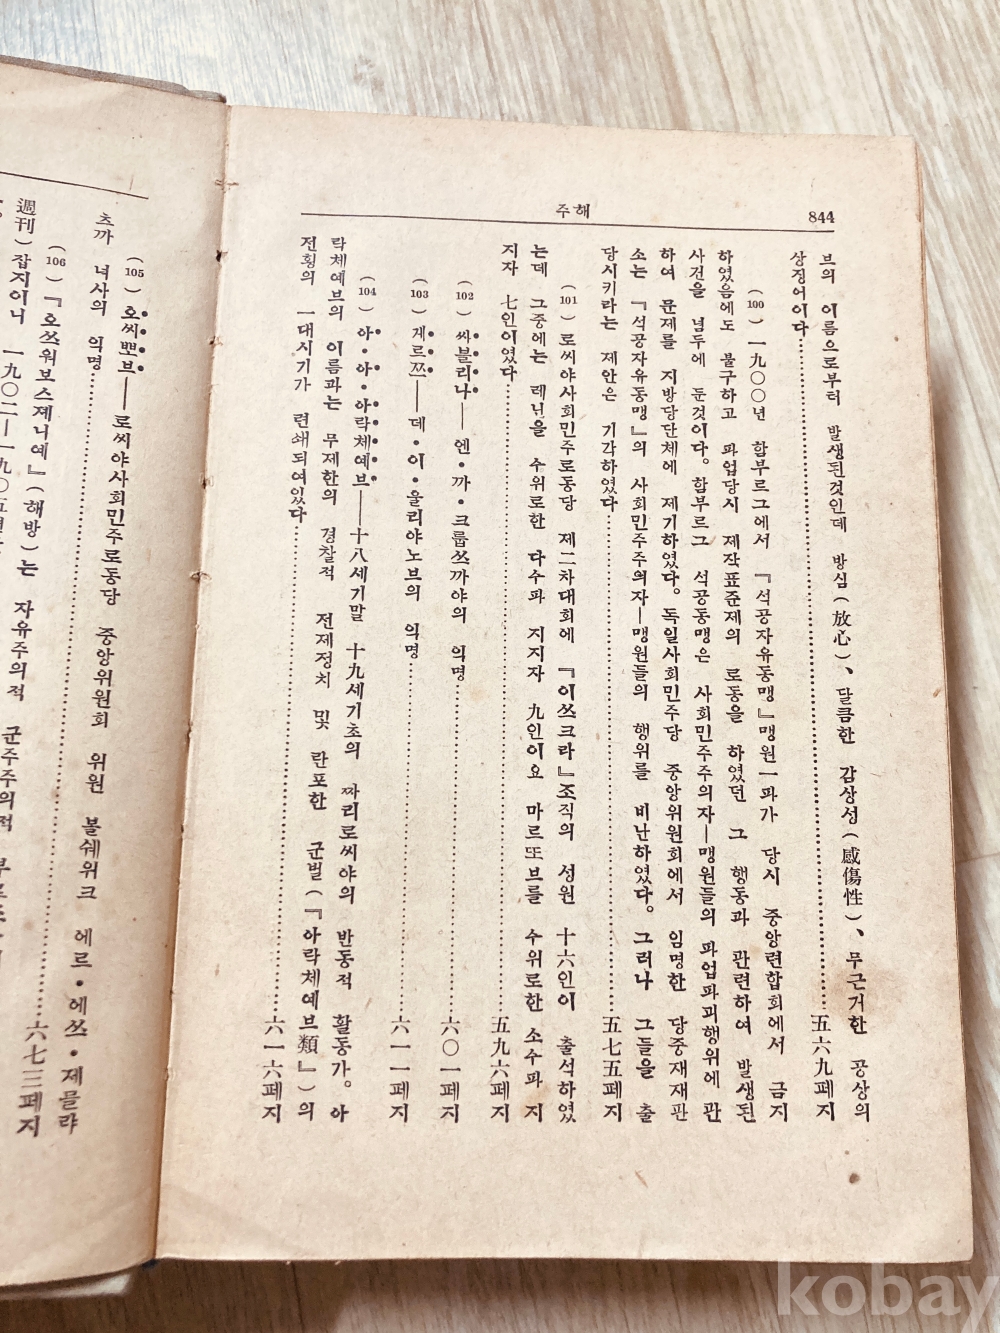 844
주해
브의 이름으로부터 발생된것인데 방심(放心)、달큼한 감상성(感傷性)、무근거한 공상의
상징어이다……………五六九페지
(100) 一九〇〇년 함부르그에서 『석공자유동맹』맹원一파가 당시 중앙련합회에서 금지
하였음에도 불구하고 파업당시 제작표준제의 로동을 하였던 그 행동과 관련하여 발생된
사건을 념두에 둔것이다。함부르그 석공동맹은 사회민주주의자—맹원들의 파업파괴행위에 관
하여 문제를 지방당단체에 제기하였다。독일사회민주당 중앙위원회에서 임명한 당중재재판
소는 『석공자유동맹』의 사회민주주의자—맹원들의 행위를 비난하였다。그러나 그들을 출
당시키라는 제안은 기각하였다……………五七五페지
(101) 로씨야사회민주로동당 제二차대회에 『이쓰크라』조직의 성원 十六인이 출석하였
는데 그중에는 레닌을 수위로한 다수파 지지자 九인이요 마르또브를 수위로한 소수파 지
지자 七인이였다……………五九六페지
(102) 싸블리나——엔•까•크룹쓰까야의 익명……………六〇一페지
(103) 게르쯔——데•이•울리야노브의 익명……………六一一페지
(104) 아•아•아락체예브——十八세기말 十九세기초의 짜리로씨야의 반동적 활동가。아
락체예브의 이름과는 무제한의 경찰적 전제정치 및 란포한 군벌(『아락체예브類』)의
전횡의 一대시기가 련쇄되여있다……………六一六페지
(105) 오씨뽀브——로씨야사회민주로동당 중앙위원회 위원 볼쉐위크 에르•에쓰•제믈랴
츠까 녀사의 익명……………六七三페지
(106) 『오쓰워보스제니예』(해방)는 자유주의적 군주주의적
週刊)잡지이니 一九〇二—一九〇五년
kobay